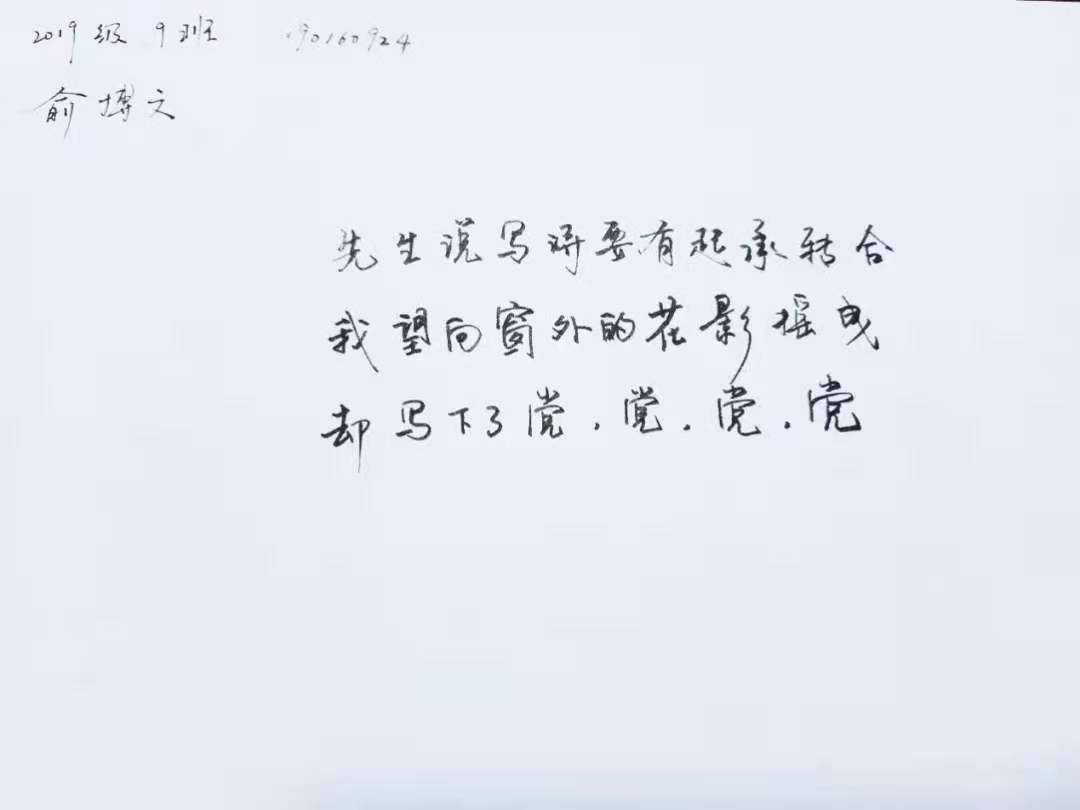 2019级 9班 190160924
俞博文
先生说写诗要有起承转合
我望向窗外的花影摇曳
却写下了党，党，党，党